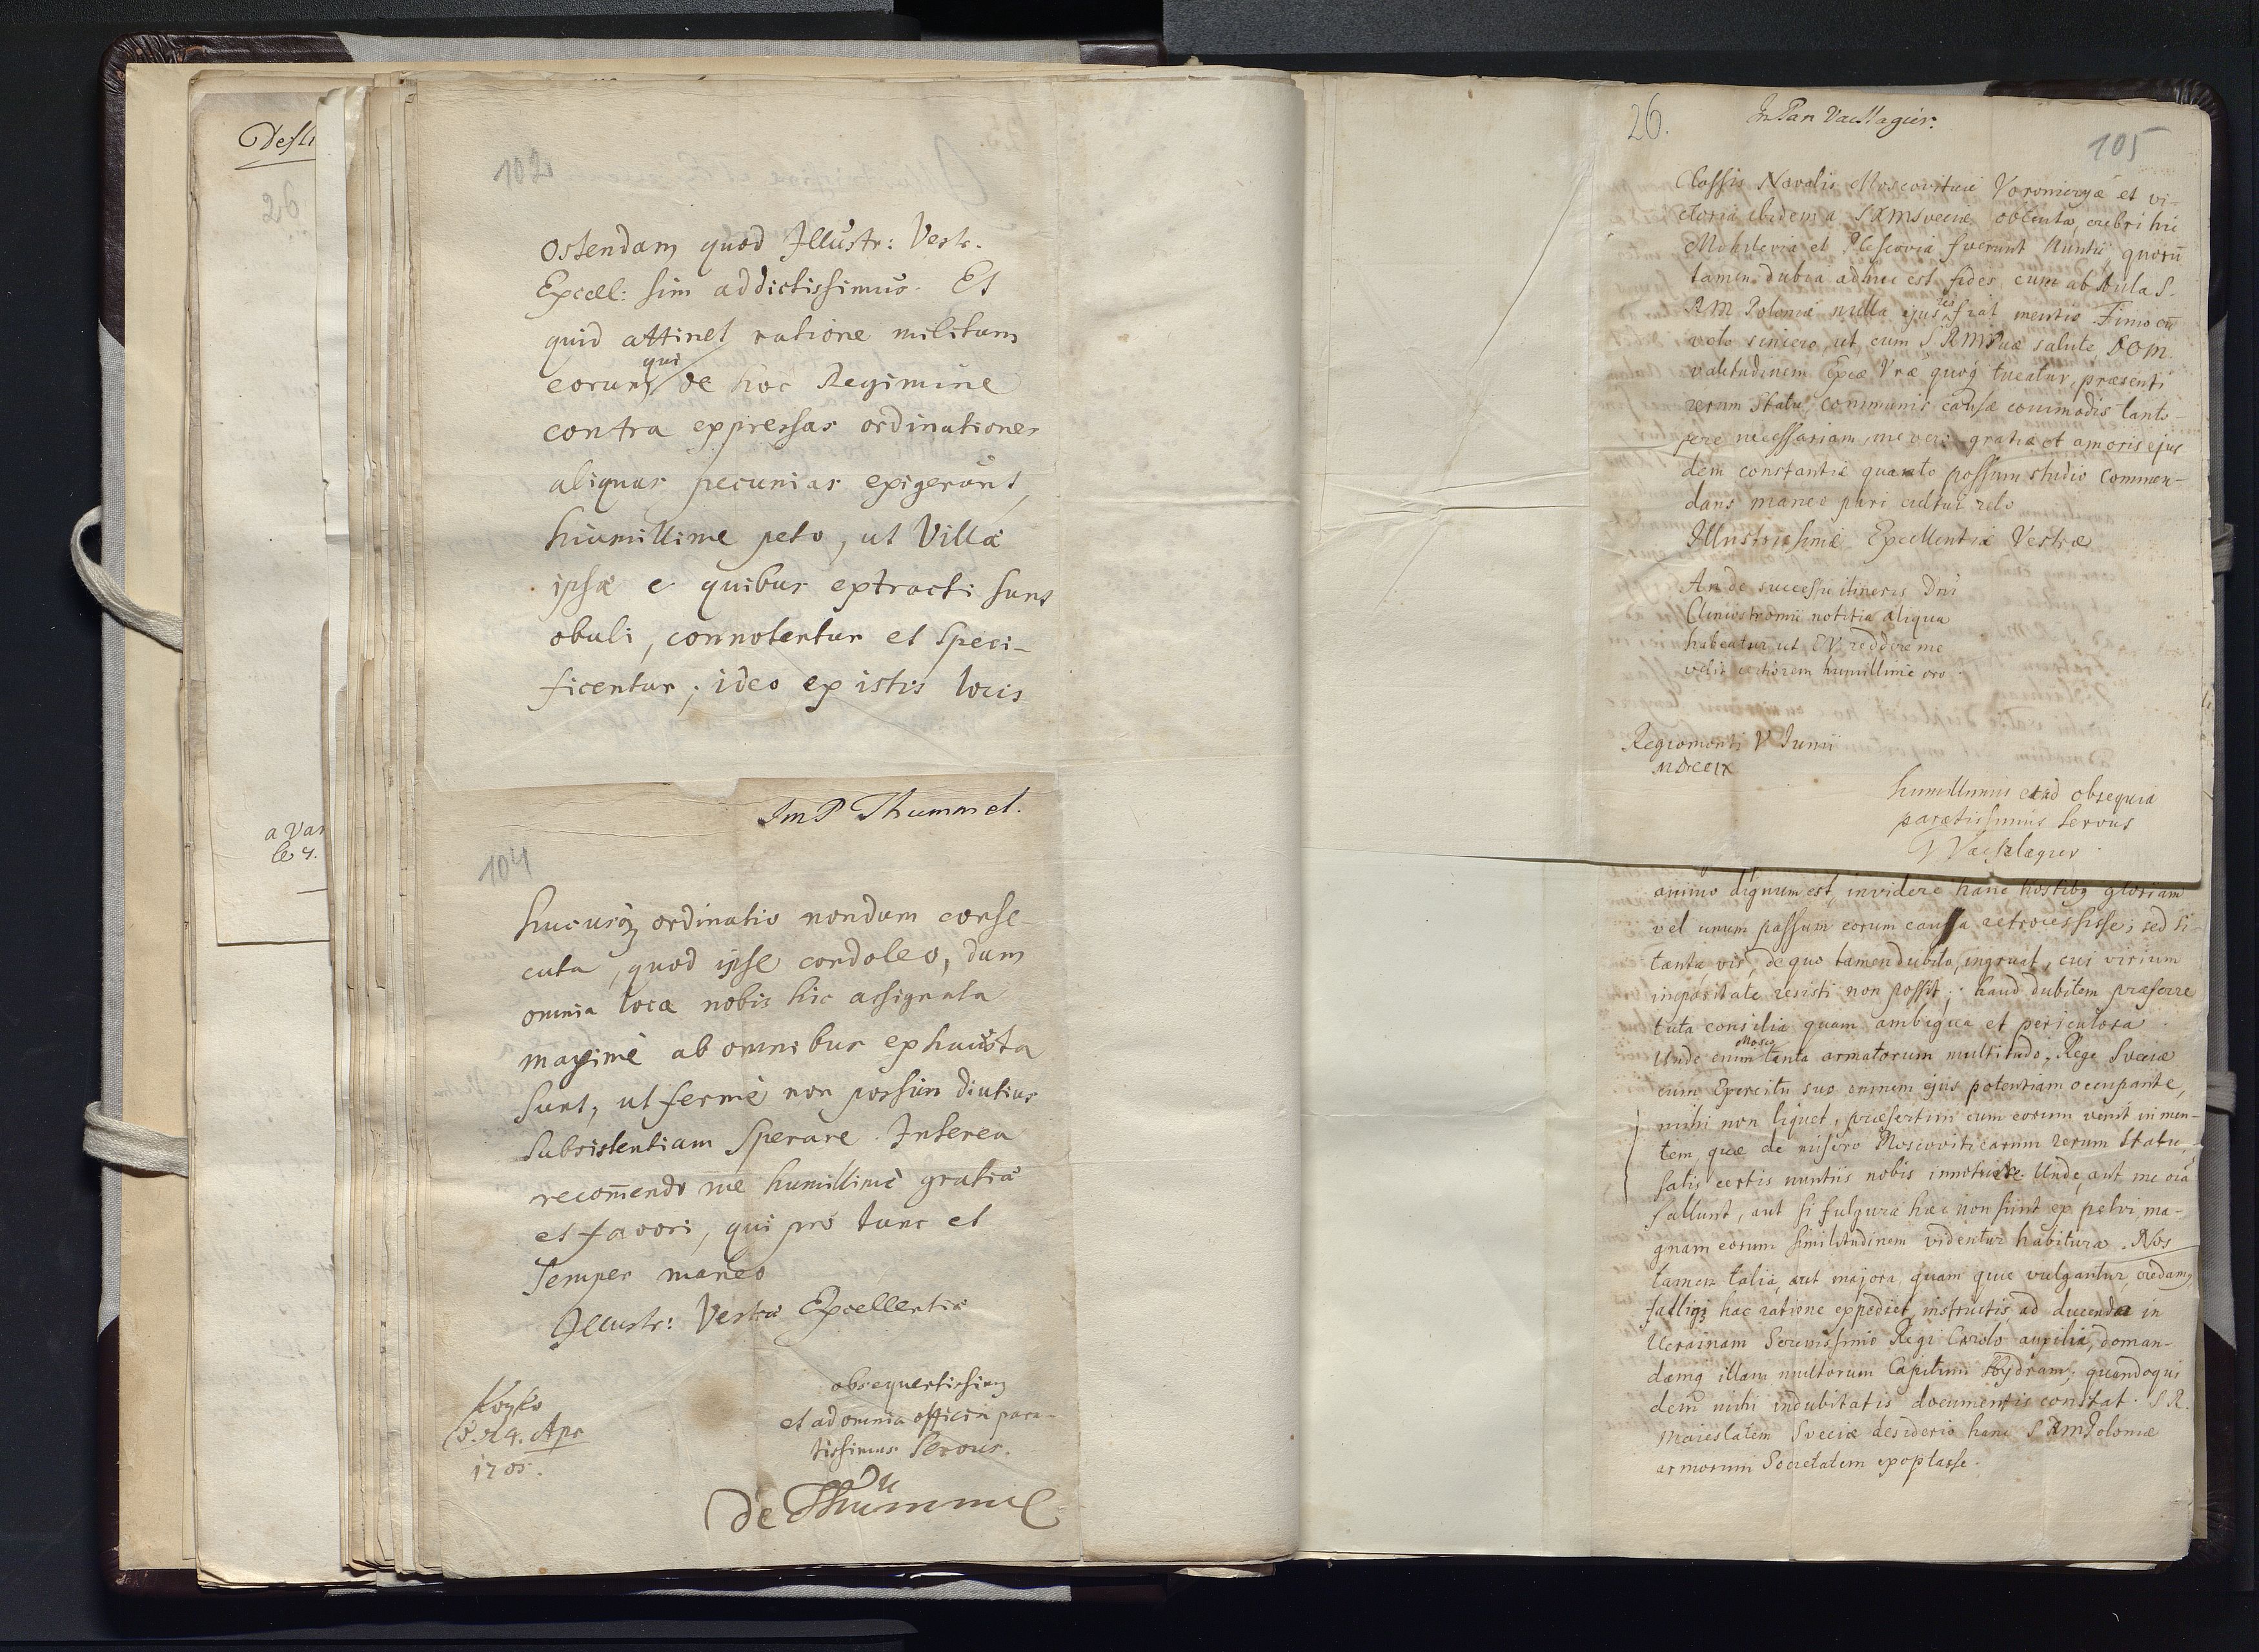 Desti
26
a Var
le 4.
102
ostendam quod Illustr: Vestr.
Excell: sim addictissimus. Et
quid attinet ratione militum
eorum, qui de hoc Regimine
contra expressas ordinationes
aliquas pecunias exigerunt,
humillime peto, ut Villæ
ipsæ e quibus extracti sunt
obuli, connotentur et speci-
ficentur; ideo ex istis locis
Im P Thummel.
104
hucusq ordinatio nondum conse-
cuta, quod ipse condoleo, dum
omnia loca nobis hic assignata
maximè ab omnibus exhausta
sunt, ut fermè non possim diutius
subsistentiam sperare. Interea
recom̄endo me humillimè gratiæ
et favori, qui pro tunc et
semper maneo
Illustr: Vestræ Excellentiæ
obsequentissimus
et ad omnia officia para-
tissimus Servus.
de Thümmel
Apr
1705.
26.
105
Classis Navalis Moscoviticæ et vi-
ctoria ibidem a SRMSveciæ obtenta, crebri hic
Mohilevia et Plescovia fuerunt Nuntii, quorū
tamen dubia adhuc est fides, cum ab Aula S.
RM Poloniæ nulla ejus rei fiat mentio. Finio cū
voto sincero, ut cum SRMSuæ salute DOM.
valetudinem Excæ Vræ quoq tueatur, præsenti
rerum statu, communis causæ commodis tanto-
pere necessariam, me vero gratiæ et amoris ejus
dem constantiæ quanto possum studio commen-
dans maneo pari cultus zelo
Illustrissimæ Excellentiæ Vestræ
An de successu itineris Dni
notitia aliqua
habeatur, ut EV reddere me
velit certiorem humillime oro.
Regiomonti V Junii
MDCCIX
humillimus et ad obsequia
paratissimus servus
animo dignum est, invidere hanc hostibq gloriam
vel unum passum eorum causa retrocessisse; sed si
tanta vis, de quo tamen dubito, ingruat, cui virium
imparitate resisti non possit; haud dubitem præferre
tuta consilia quam ambigua et periculosa.
Unde enim Mosco tanta armatorum multitudo, Rege Sveciæ
cum Exercitu suo omnem ejus potentiam occupante,
mihi non liquet, præsertim cum eorum venit in men-
tem, quæ de misero Moscoviticarum rerum statu,
satis certis nuntiis nobis innotuere. Unde, aut me oīa
fallunt, aut si fulgura hæc non sunt ex pelvi, ma-
gnam eorum similitudinem videntur habitura. Nos
tamen talia, aut majora, quam quæ vulgantur, credamq
falliq; hac ratione expediet, instructis ad ducenda in
Ucrainam Serenissimo Regi Carolo auxilia, doman-
damq illam multorum Capitum Hydram, quandoqui
dem mihi indubitatis documentis constat. S R.
Maiestatem Sveciæ desiderio hanc SRMPoloniæ
armorum Societatem exoptasse.